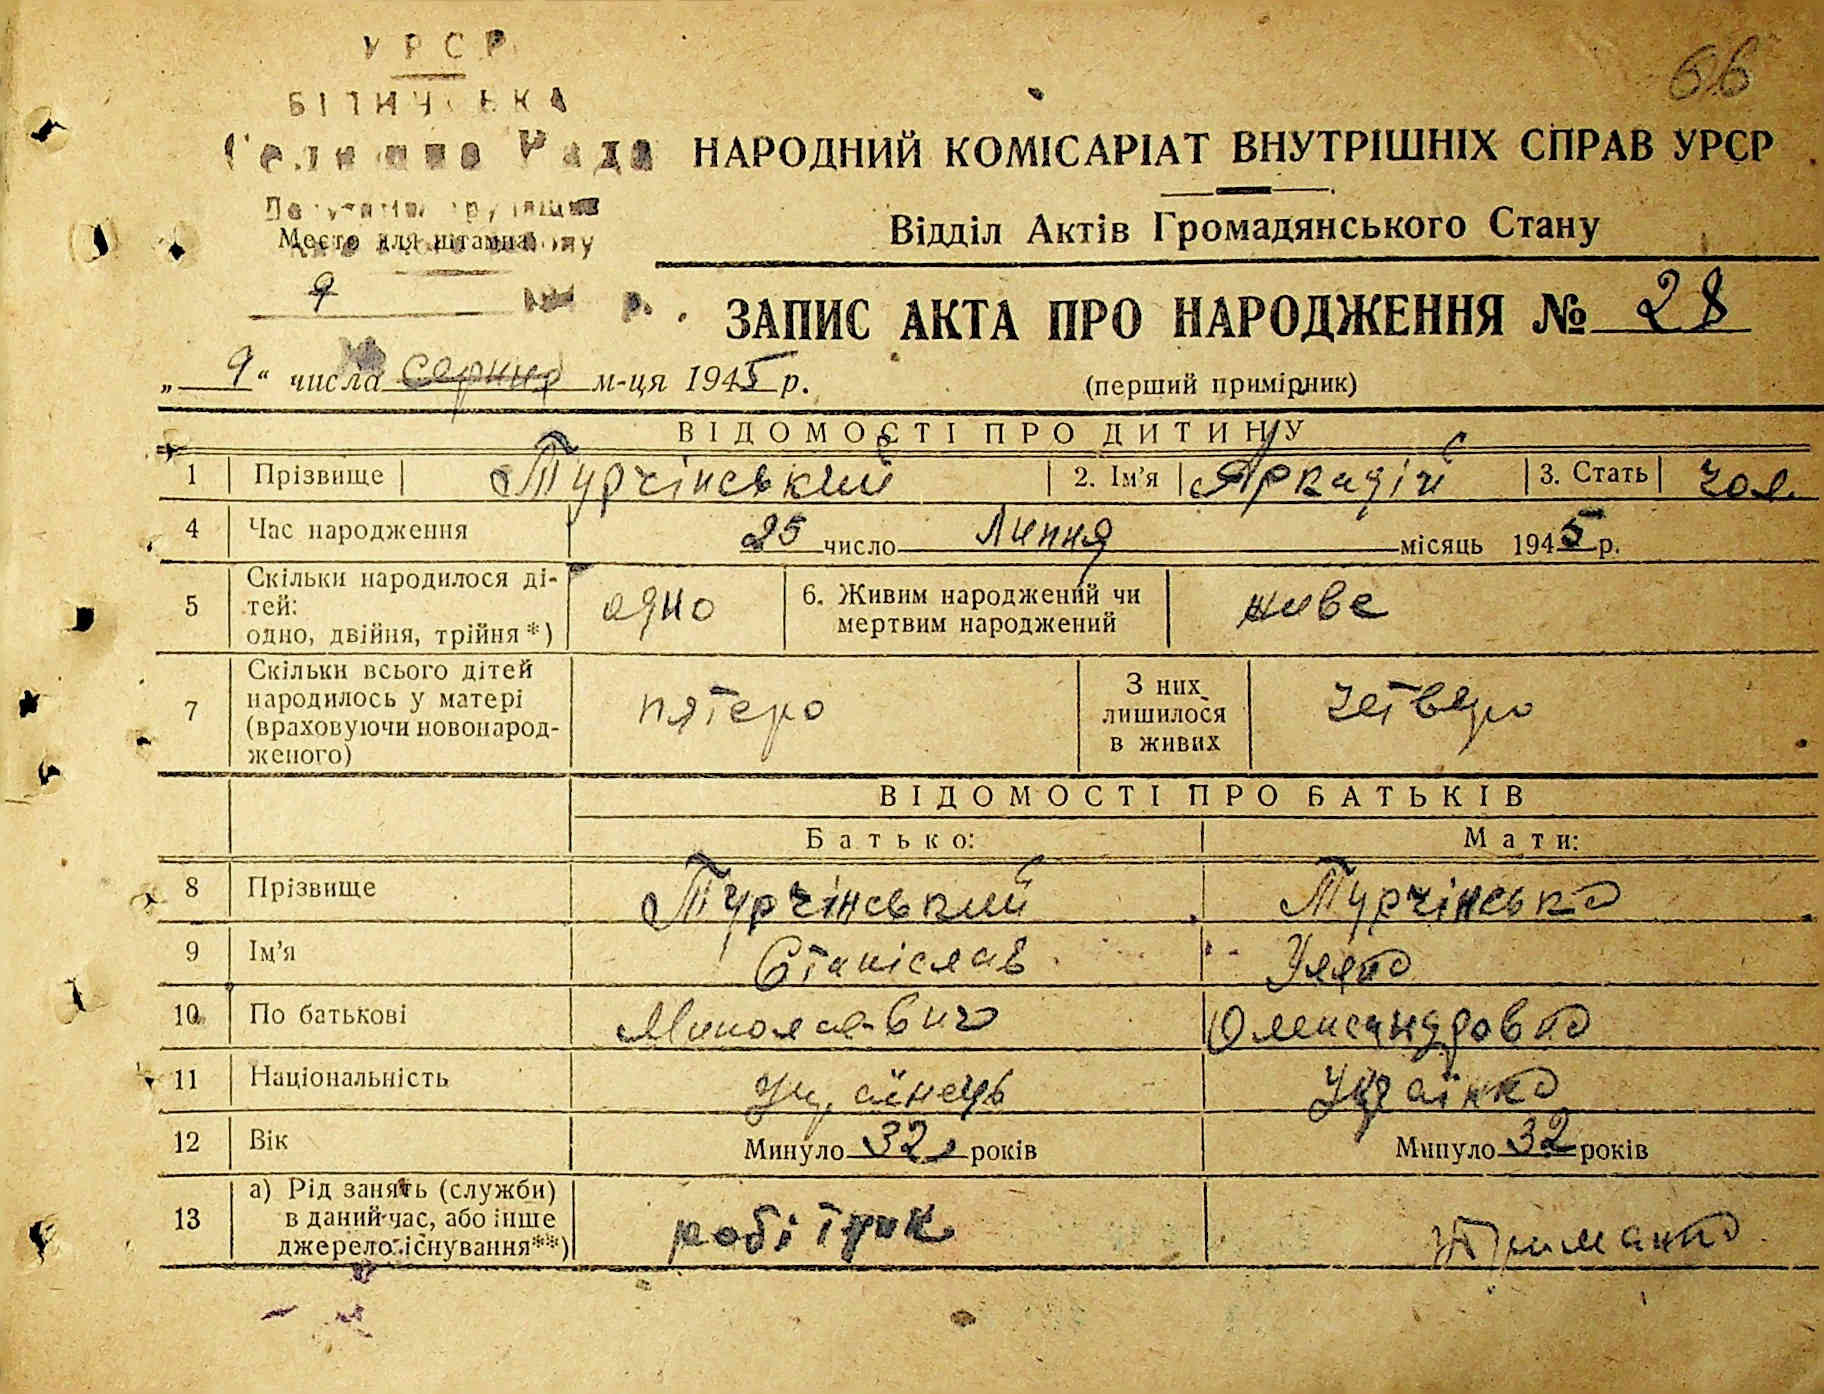 УРСР
66
Рада
НАРОДНИЙ КОМІСАРІАТ ВНУТРІШНІХ СПРАВ УРСР
Відділ Актів Громадянського Стану
Место для штампа
9 р.
ЗАПИС АКТА ПРО НАРОДЖЕННЯ № 28
„ 9 “ числа серпня м-ця 1945 р.
(перший примірник)
ВІДОМОСТІ ПРО ДИТИНУ
1 Прізвище Турчінський 2. Ім'я Аркадій 3. Стать чол.
4 Час народження 25 число Липня місяць 1945 р.
5 Скільки народилося ді-
тей:
одно, двійня, трійня *) одно 6. Живим народжений чи
мертвим народжений живе
7 Скільки всього дітей
народилось у матері
(враховуючи новонарод-
женого) пятеро З них
лишилося
в живих четверо
ВІДОМОСТІ ПРО БАТЬКІВ
Батько: Мати:
8 Прізвище Турчінський Турчінська
9 Ім'я Станіслав Уляна
10 По батькові Миколаєвич Олександровна
11 Національність Українець Українка
12 Вік Минуло 32 років Минуло 32 років
13 а) Рід занять (служби)
в даний час, або інше
джерело існування**) робітник